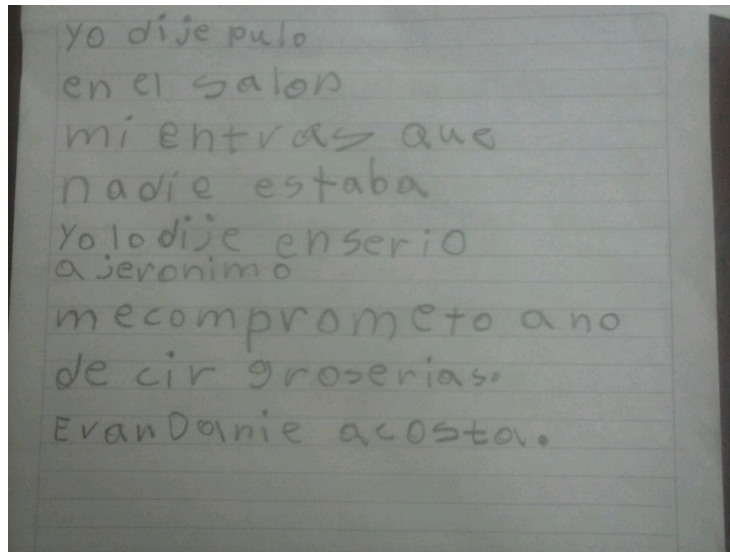 yo dije pulo
en el salon
mi entras que
nadie estaba
yo lo dije enserio
a jeronimo
mecomprometo a no
de cir groserias.
Evan Danie acosta.